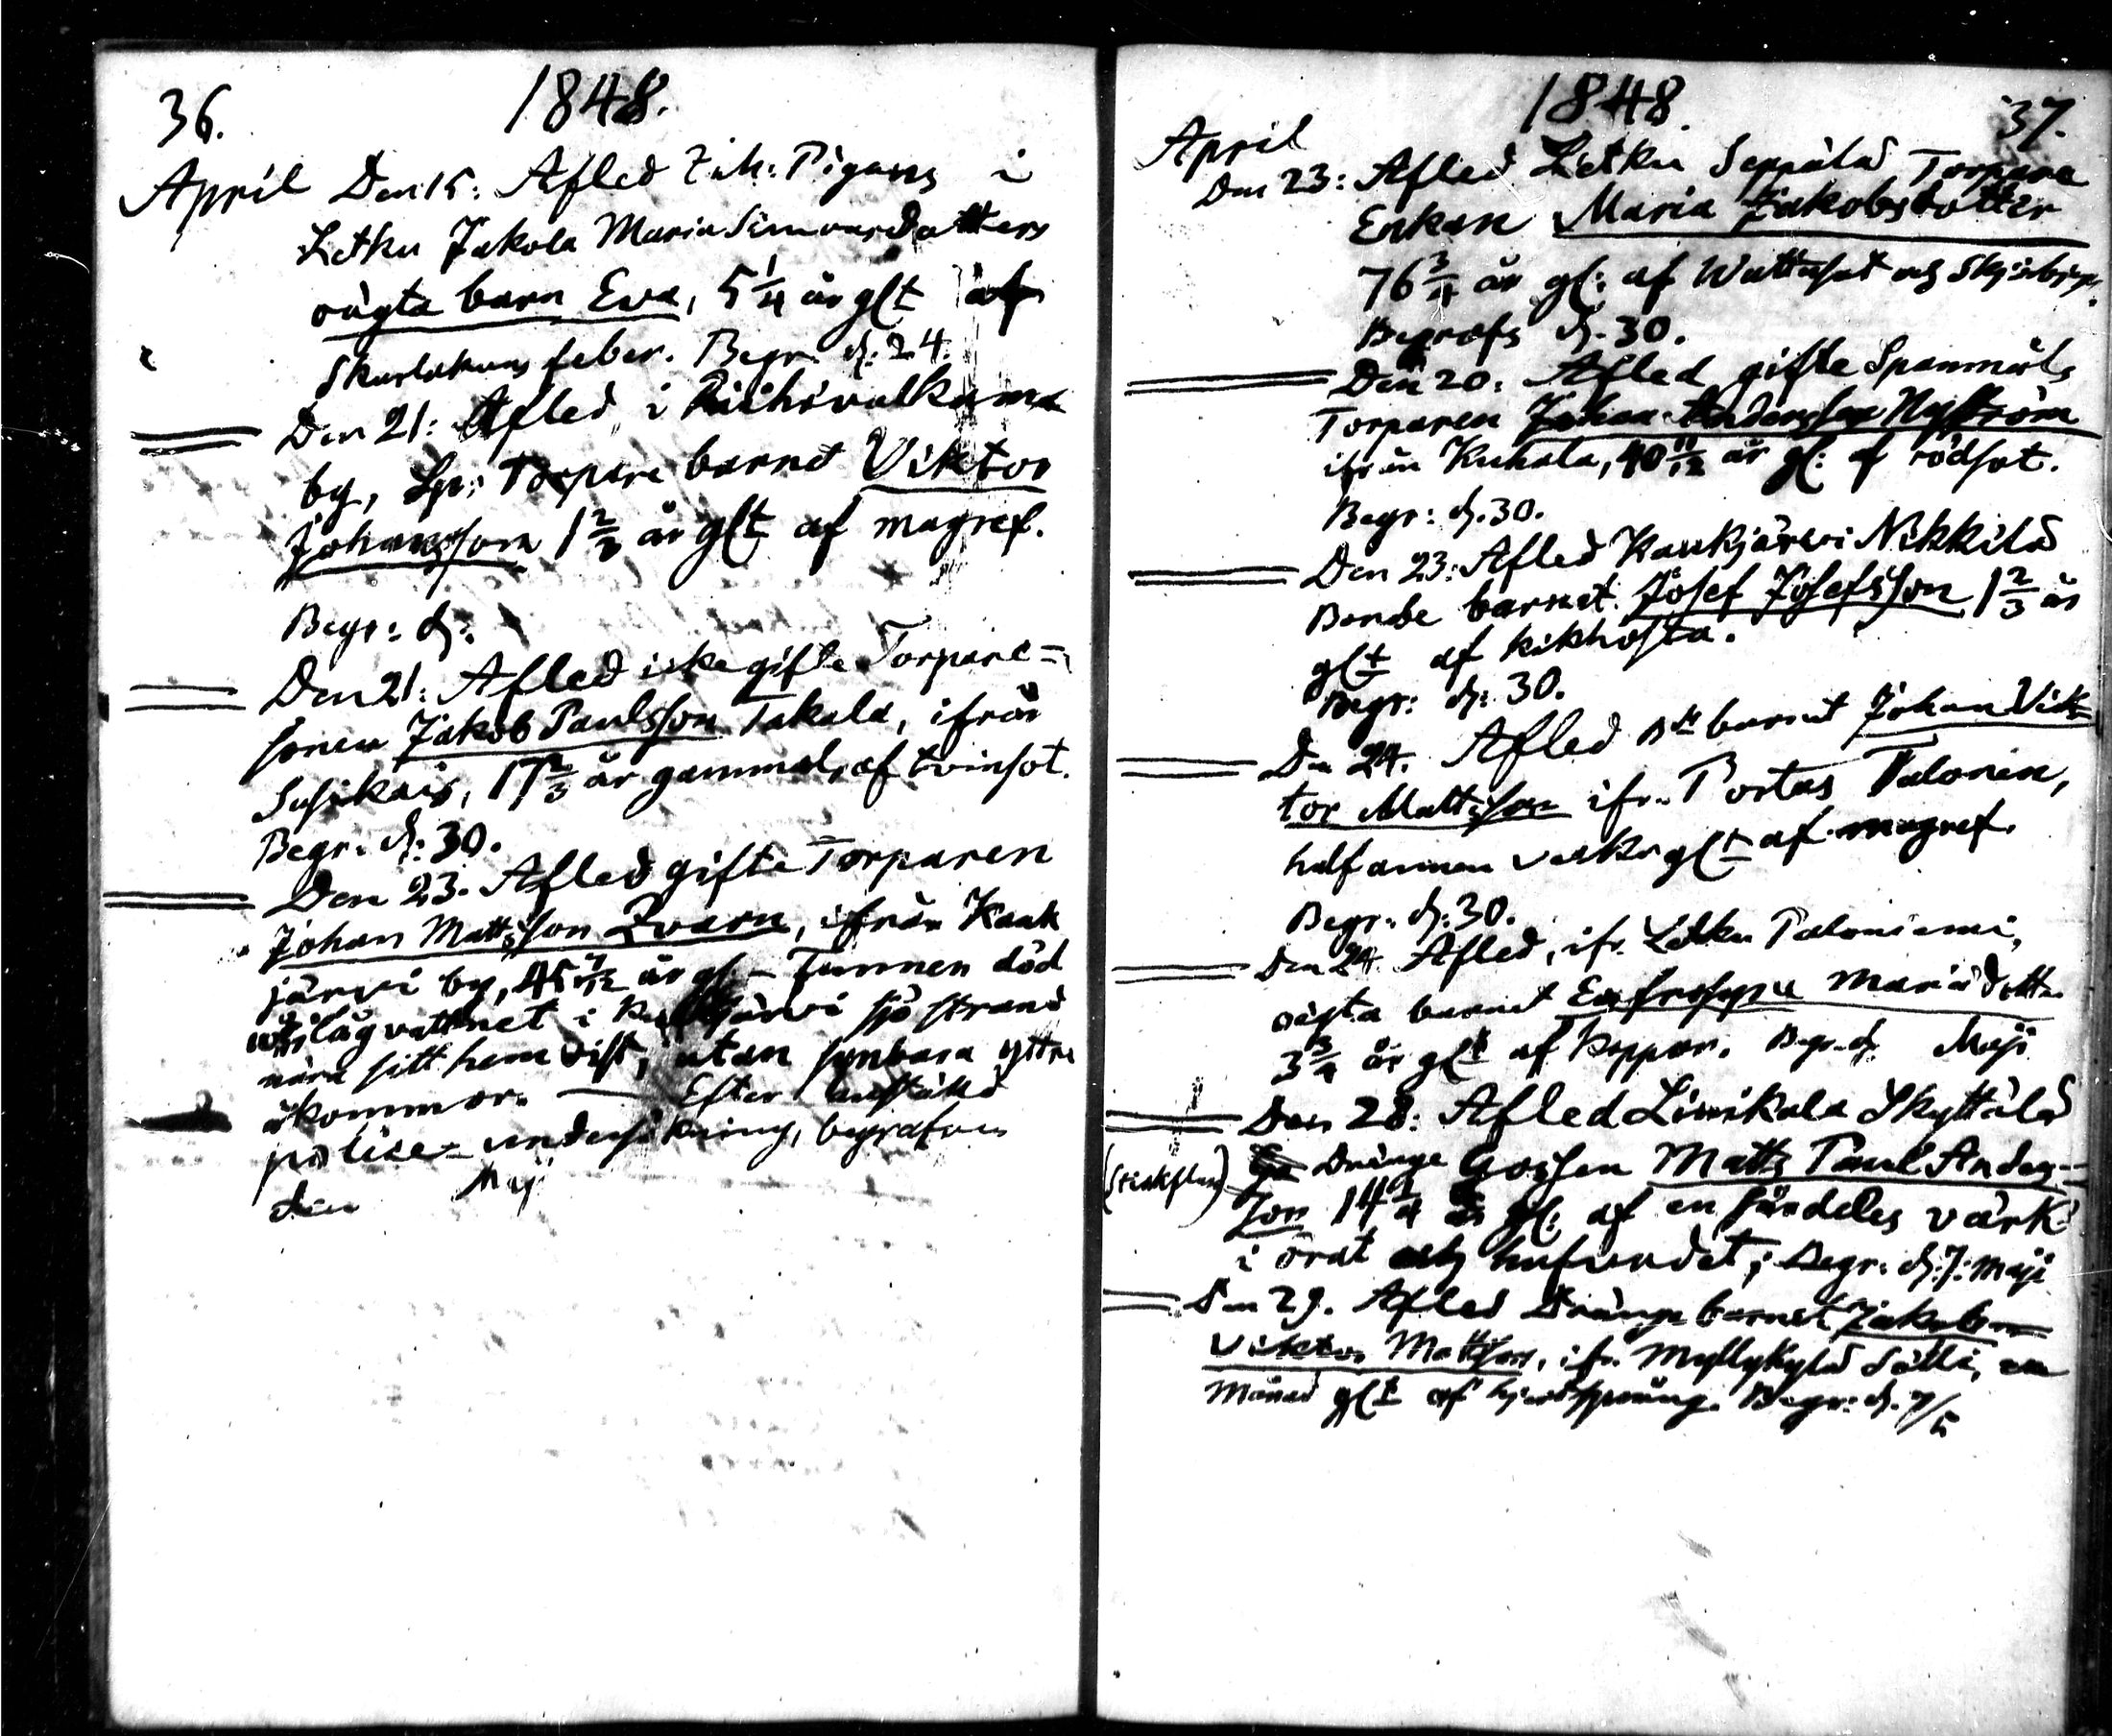 36. 1848.
April Den 15: Afled Pigans i
Letku Jakola Maria Simonsdotters
oägta barn Eva, 5 1/4 år glt af
Skarlakans feber. Begr. d: 24.
Den 21: Afled i Riihivalkama
by, Torpare barnet Viktor
Johansson 1 2/3 år glt af magref.
Begr: d:
Den 21: Afled icke gifte Torpare=
sonen Jakob Paulsson Takala, ifrån
Susikais, 17 2/3 år gammal, af tvinsot.
Begr. d: 30.
Den 23. Afled gifte Torparen
Johan Mattsson Qvarn, ifrån Kauk
järvi by, 45 år gl. – Funnen död
lågvattnet i sjö strand
nära sitt hemvist, utan synbara yttre
åkommor. — Efter anstäld
polise= undersökning, begrafven
den Maji
1848. 37.
April
Den 23: Afled Letku Seppälä Torpare
Enkan Maria Jakobsdotter
76 3/4 år gl: af Wattusot och
Begrofs d. 30.
Den 20: Afled gifte Spanmåls
Torparen Johan Andersson Nyström
ifrån Kuhala, 40 11/12 år gl: af rödsot.
Begr: d. 30.
Den 23: Afled Kaukjärvi Nikkilä
Bonde barnet Josef Josefsson 1 2/3 år
glt af kikhosta.
Begr: d: 30.
Den 24. Afled barnet Johan Vik=
tor Mattsson ifr. Portas Talonen,
half annan veka glt af magref.
Begr. d: 30.
Den 24. Afled, ifr. Letku Taloniemi,
oägta barnet Eufrosyne Mariadotter
3 3/4 år glt af koppor. Begr. d. Maji
Den 28: Afled Liesikala Skyttälä
Dränge Gossen Matts Paul Anders=
son 14 år gl: af en särdeles värk
i örat och hufvudet; Begr. d: 7: Maji
Den 29. Afled Dränge barnet Jakob
Viktor Mattsson, ifr. Myllykylä Sälli, en
Månad glt af hjertsprång. Begr: d. 7/5